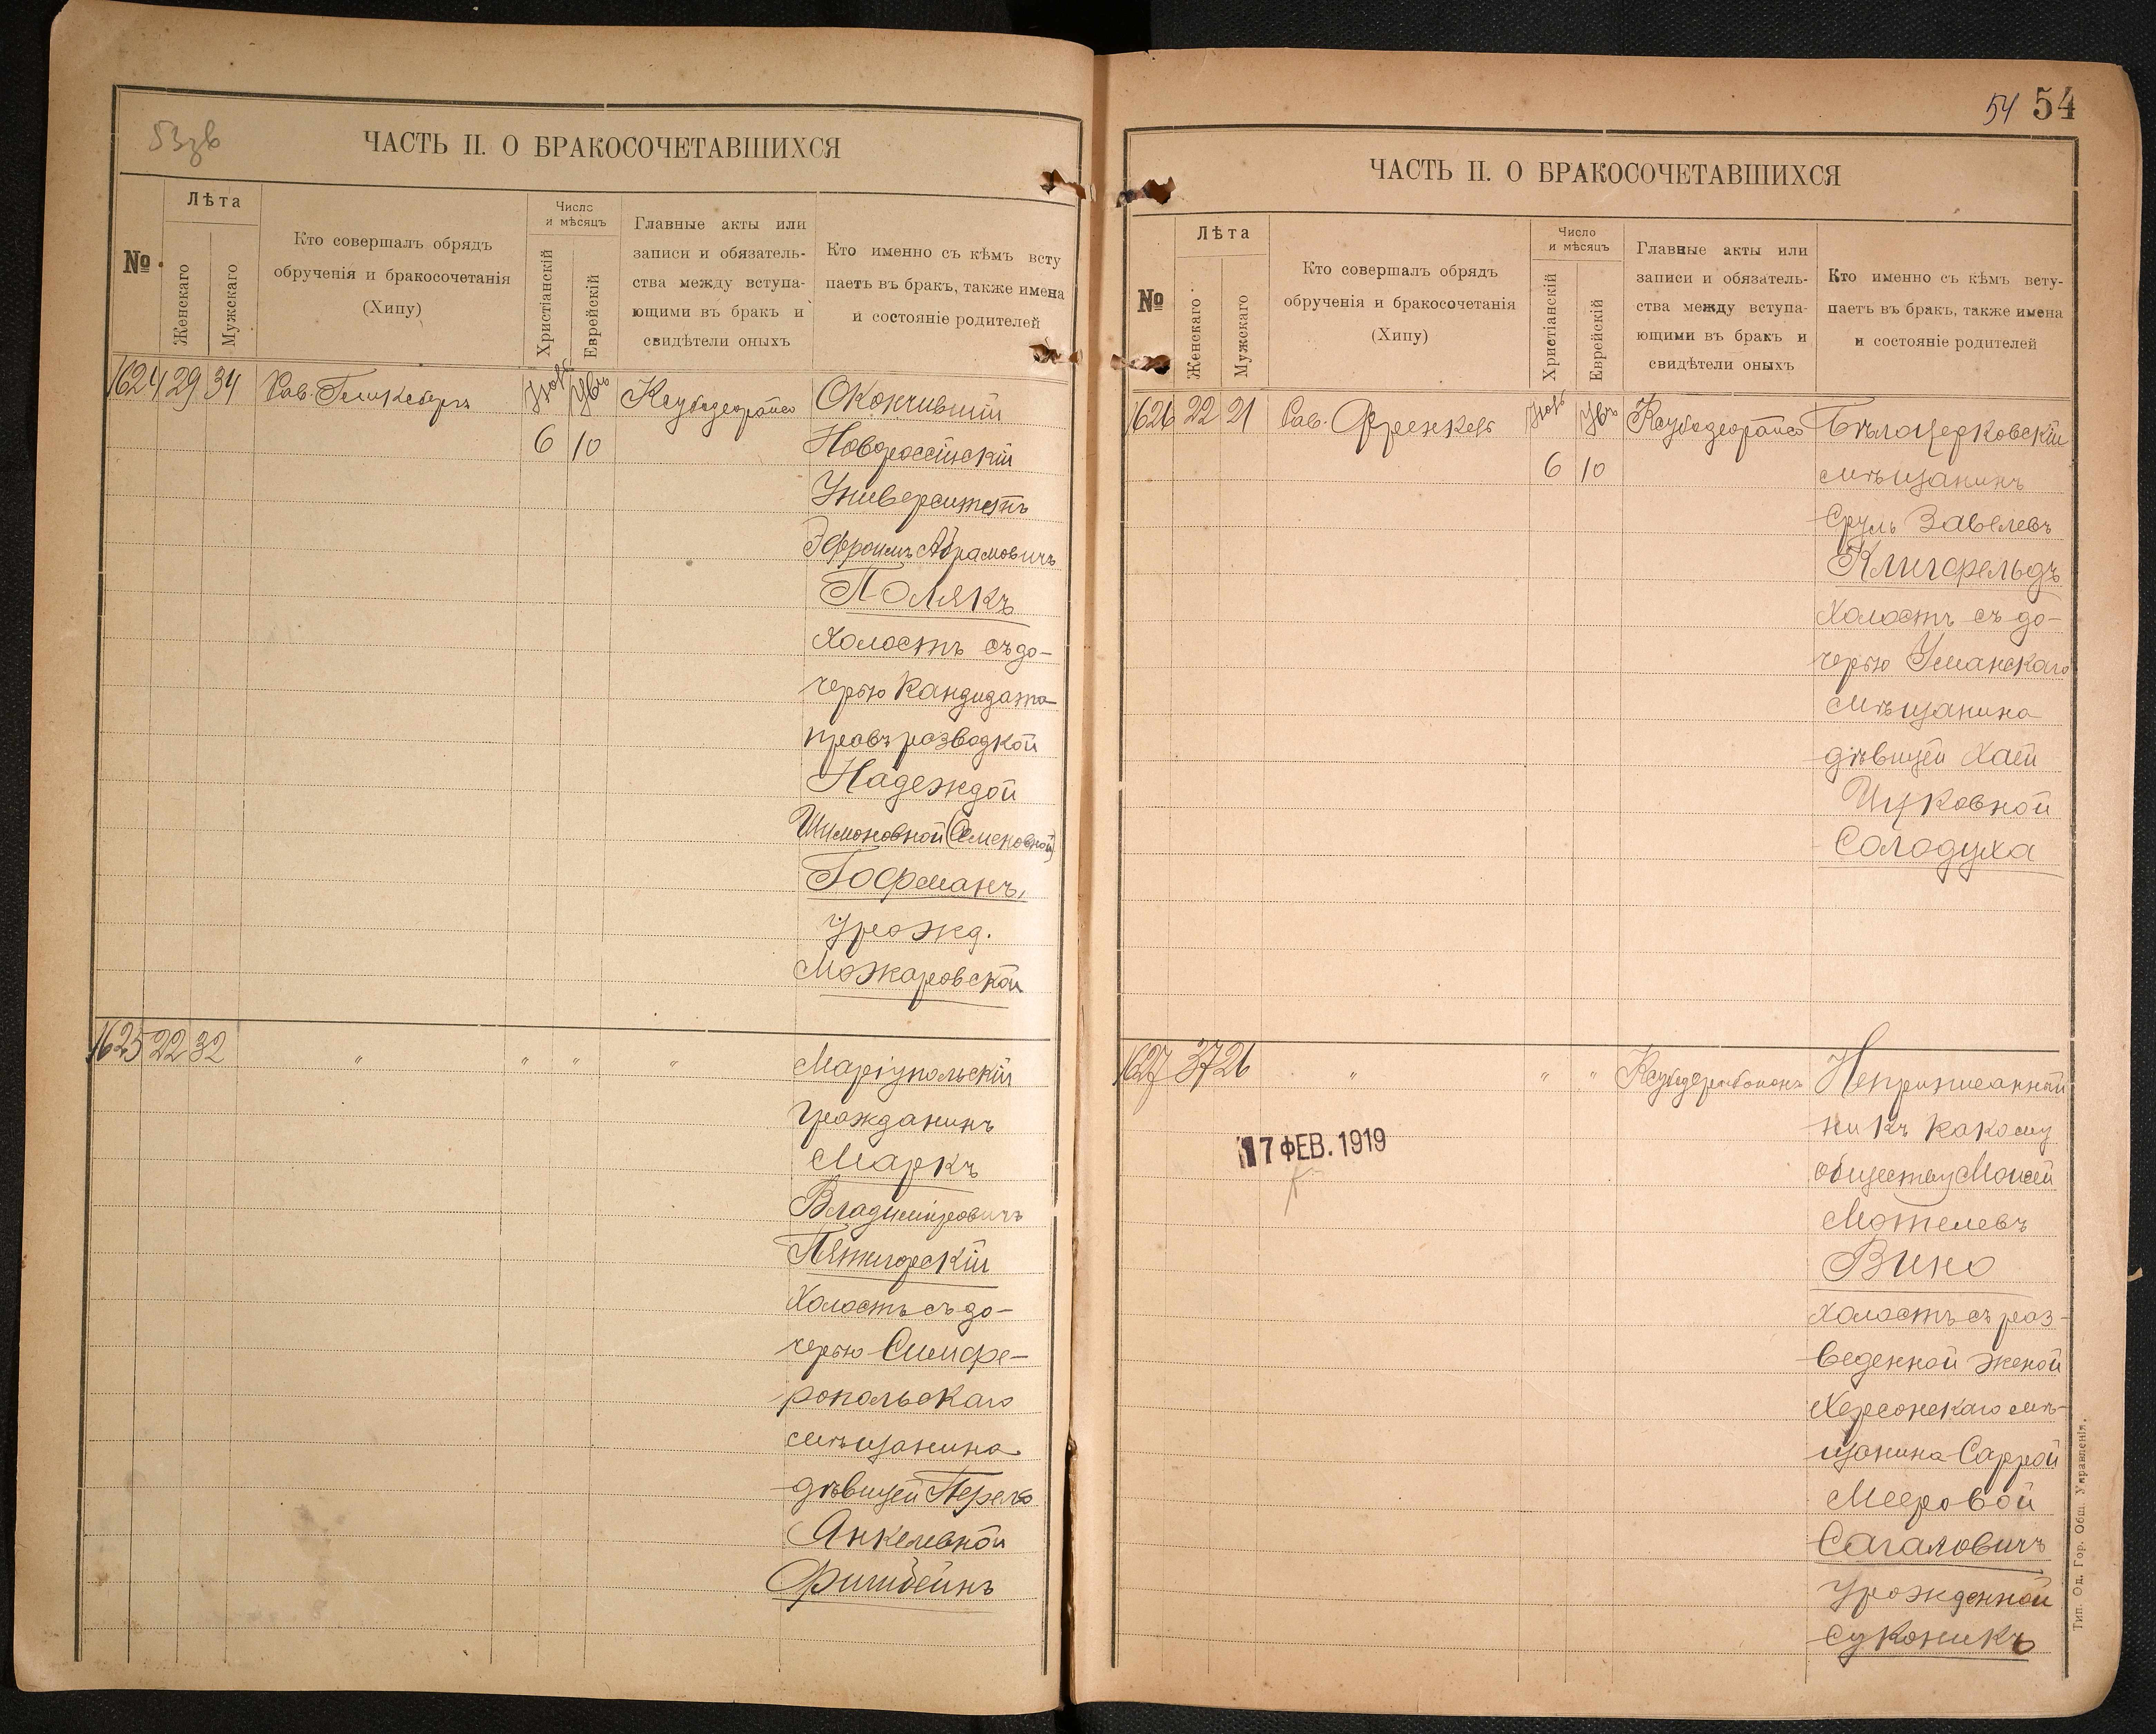 53зв
ЧАСТЬ II. О БРАКОСОЧЕТАВШИХСЯ
№
Лѣта
Женскаго
Мужскаго
Кто совершалъ обрядъ
обрученія и бракосочетанія
(Хипу)
Число
и мѣсяцъ
Христіанскій
Еврейскій
Главные акты или
записи и обязатель-
ства между вступа-
ющими въ бракъ и
свидѣтели оныхъ
Кто именно съ кѣмъ всту
паетъ въ бракъ, также имена
и состояніе родителей
1624 29 34 Рав. Нояб Окончившій
6 10 Новороссійскій
Университетъ
Эфроимъ Абрамовичъ
Полякъ
холостъ съ до-
черью Кандидата
правъ разводкой
Надеждой
Шимоновной (Семеновной)
Гофманъ,
урожд.
Можаровской
1625 22 32 " " " " Маріупольскій
гражданинъ
Маркъ
Владиміровичъ
Пятигорскій
холостъ съ до-
черью Симфе-
ропольскаго
мѣщанина
дѣвицей Перель
Янкелевной
Фишбейнъ
54 54
ЧАСТЬ II. О БРАКОСОЧЕТАВШИХСЯ
№
Лѣта
Женскаго
Мужскаго
Кто совершалъ обрядъ
обрученія и бракосочетанія
(Хипу)
Число
и мѣсяцъ
Христіанскій
Еврейскій
Главные акты или
записи и обязатель-
ства между вступа-
ющими въ бракъ и
свидѣтели оныхъ
Кто именно съ кѣмъ всту-
паетъ въ бракъ, также имена
и состояніе родителей
1626 22 21 Рав. Френкель Нояб Бѣлоцерковскій
6 10 мѣщанинъ
Сруль Завелевъ
Клигфельдъ
холостъ съ до-
черью Уманскаго
мѣщанина
дѣвицей Хаей
Ицковной
Солодуха
1627 37 26 " " " Неприписанный
ни къ какому
обществу Моисей
Мотелевъ
Вино
холостъ съ раз-
веденной женой
Херсонскаго мѣ-
щанина Саррой
Мееровой
Сагаловичъ
урожденной
Суконикъ
17 ФЕВ. 1919
Тип. Од. Гор. Общ. Управленія.